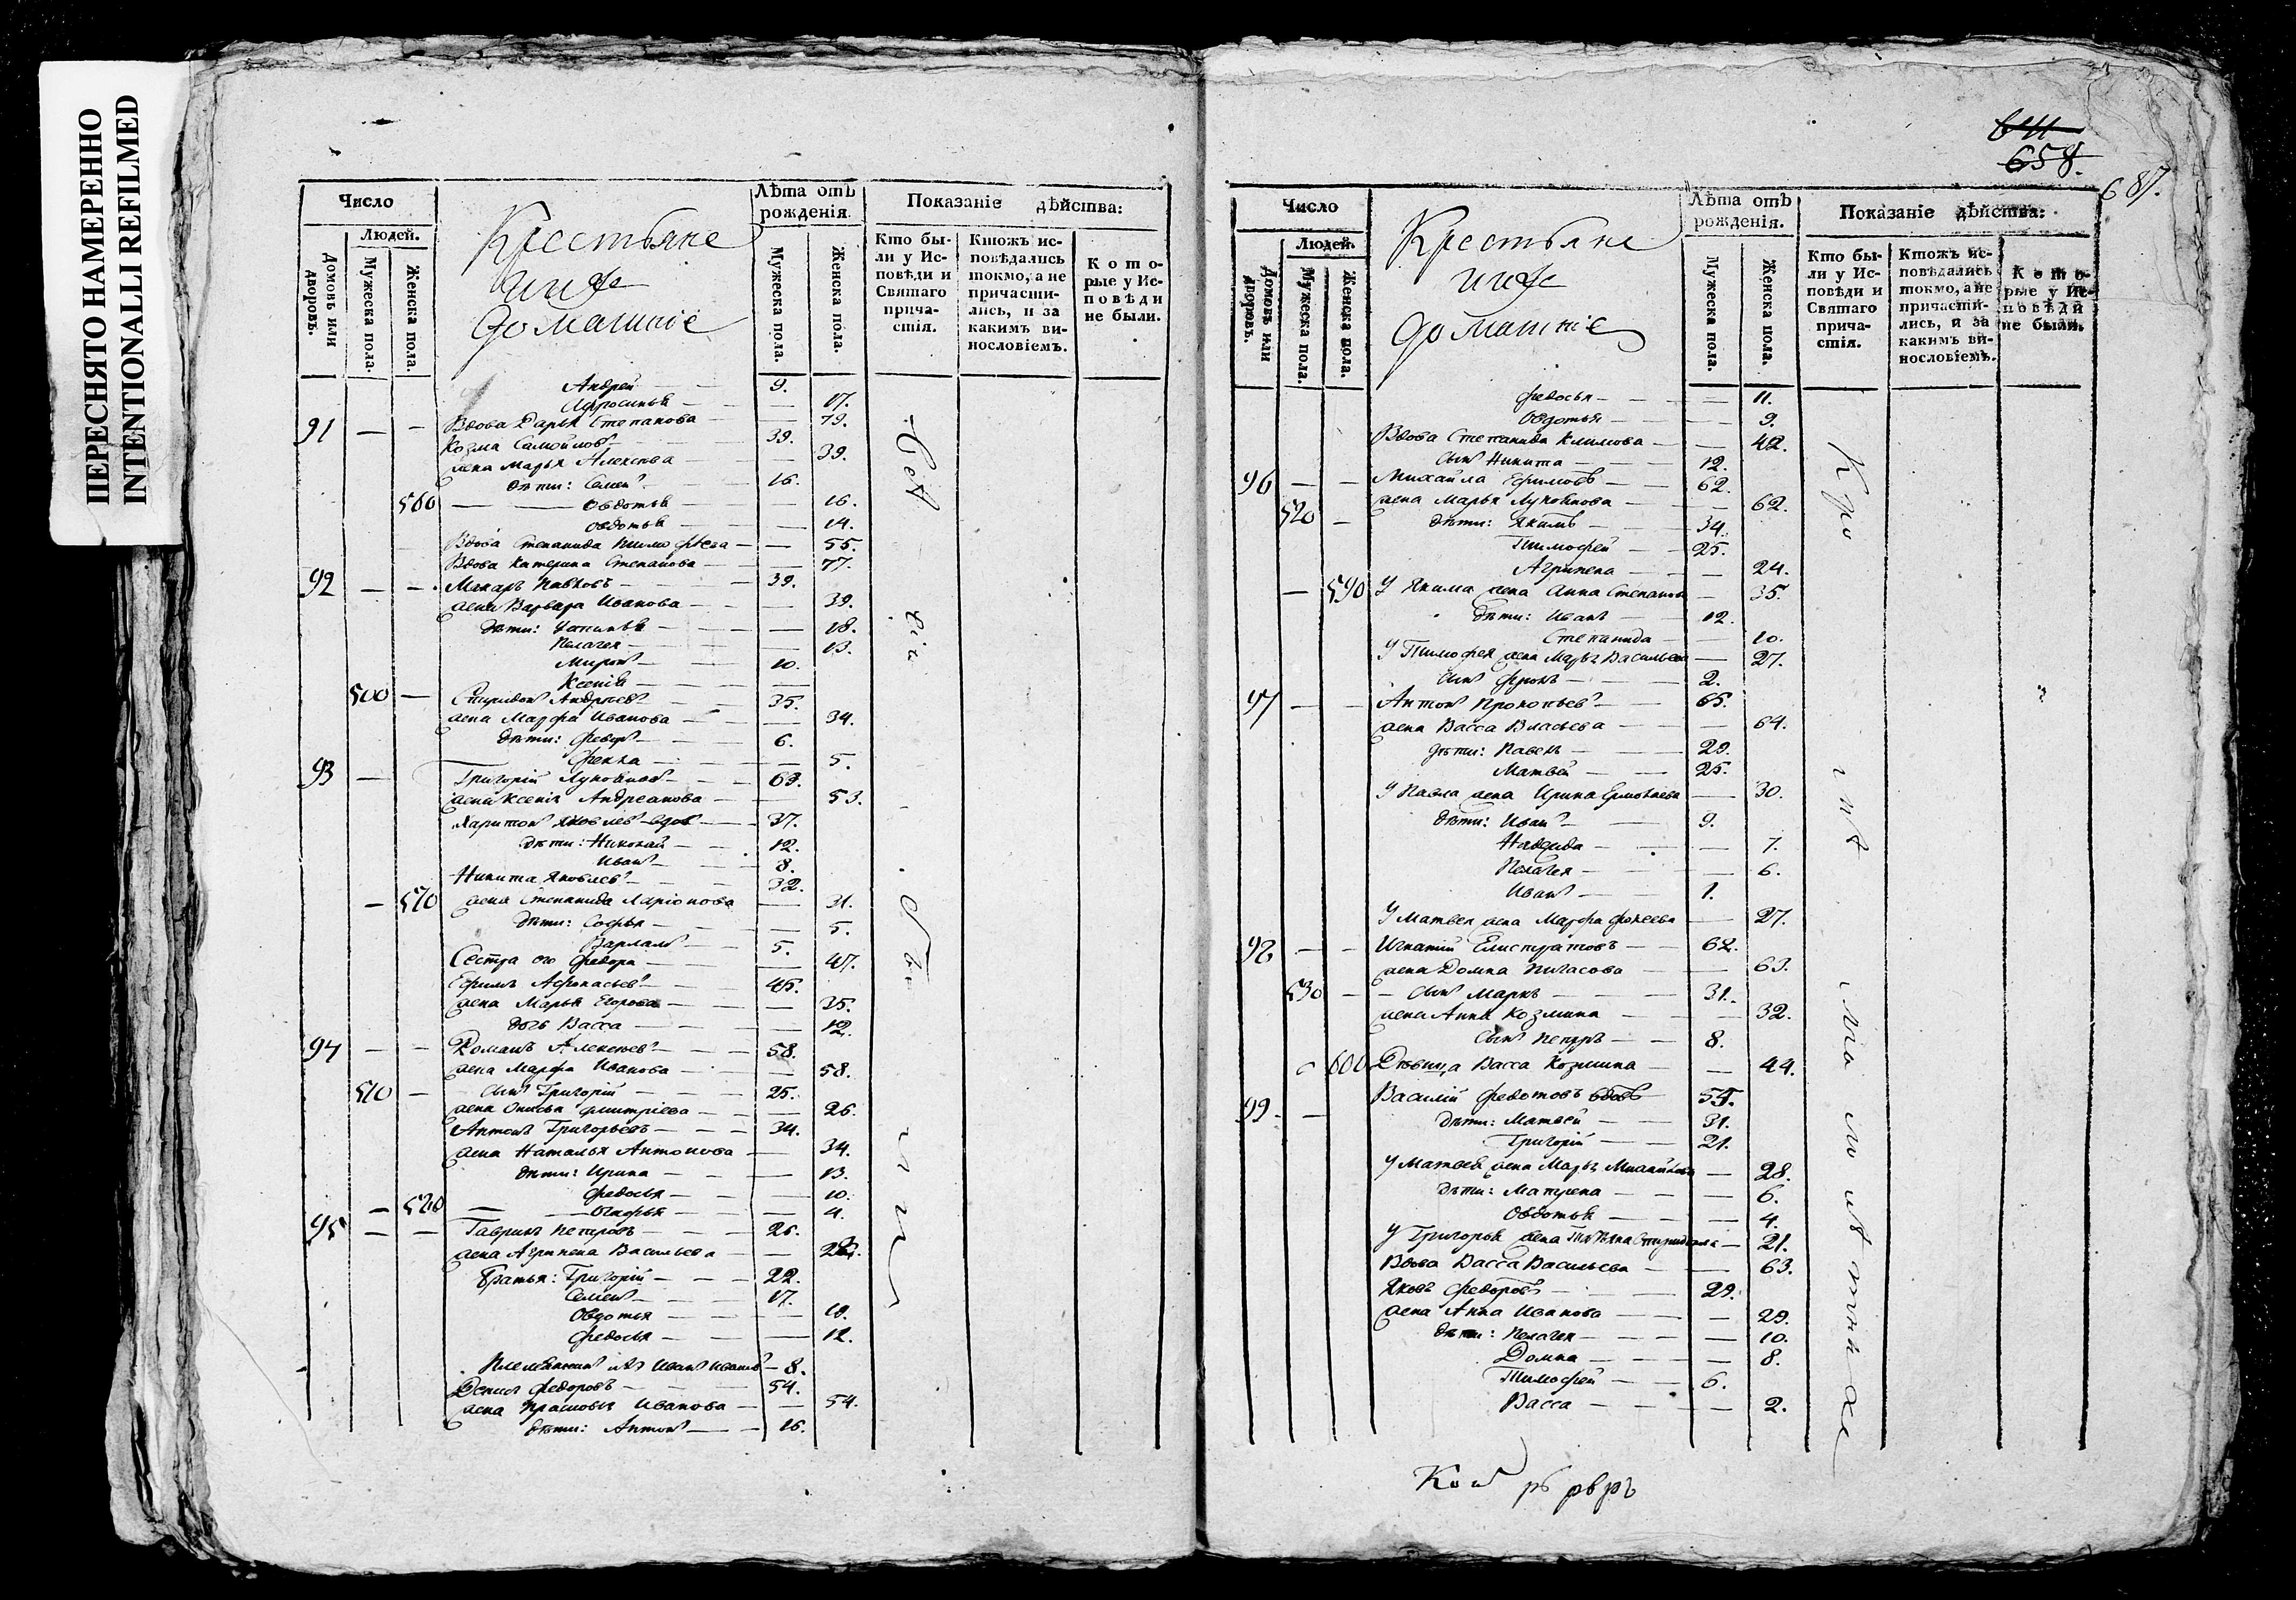 ПЕРЕСНЯТО НАМЕРЕННО
INTENTIONALLI REFILMED
Число
Людей.
Домовъ или дворовъ.
Мужеска пола.
Женска пола.
Крестьяне
ихъ
домашніе
Лѣта отъ рожденія.
Мужеска пола.
Женска пола.
Показаніе дѣйства:
Кто бы-
ли у Ис-
повѣди и
Святаго
прича-
стія.
Ктожъ ис-
повѣдались
токмо, а не
причасти-
лись, и за
какимъ ви-
нословіемъ.
Кото-
рые у Ис-
повѣди
не были.
Андрей 9.
Афросинья 17.
91 Вдова Дарья Степанова 79.
Козма Самойловъ 39.
жена Марья Алексеева 39.
дѣти: Семенъ 16.
560 Овдотья 16.
Овдотья 14.
Вдова Степанида Тимофеева 55.
Вдова Катерина Степанова 77.
92 Макаръ Павловъ 39.
жена Варвара Иванова 39.
дѣти: Устинья 18.
Пелагея 13.
Миронъ 10.
Ксенія
500 Спиридонъ Андреевъ 35.
жена Марфа Иванова 34.
дѣти: Федоръ 6.
Фекла 5.
93 Григорій Лукояновъ 63.
жена Ксенія Андреанова 53.
Харитонъ Яковлевъ вдовъ 37.
дѣти: Николай 12.
Иванъ 8.
Никита Яковлевъ 32.
570 жена Степанида Ларіонова 31.
дѣти: Софья 5.
Варламъ 5.
Сестра его Федора 47.
Ефимъ Афонасьевъ 45.
жена Марья Егорова 35.
дочь Васса 12.
94 Романъ Алексеевъ 58.
жена Марфа Иванова 58.
510 сынъ Григорій 25.
жена Онисья Дмитріева 26.
Антонъ Григорьевъ 34.
жена Наталья Антонова 34.
дѣти: Ирина 13.
Федосья 10.
580 4.
95 Гаврила Петровъ 26.
жена Агрипена Васильева
братья: Григорій 22.
Семенъ 17.
Овдотья
Федосья 12.
Племянникъ ихъ Иванъ Ивановъ 8.
Денисъ Федоровъ 54.
жена Прасковья Иванова 54.
дѣти: Антонъ 16.
641
658.
687.
Число
Людей.
Домовъ или дворовъ.
Мужеска пола.
Женска пола.
Крестьяне
ихъ
домашніе
Лѣта отъ рожденія.
Мужеска пола.
Женска пола.
Показаніе дѣйства:
Кто бы-
ли у Ис-
повѣди и
Святаго
прича-
стія.
Ктожъ ис-
повѣдались
токмо, а не
причасти-
лись, и за
какимъ ви-
нословіемъ.
Кото-
рые у Ис-
повѣди
не были.
Федосья 11.
Овдотья 9.
Вдова Степанида Климова 42.
сынъ Никита 12.
96 Михайла Ефимовъ 62.
520 жена Марья Лукоянова 62.
дѣти: Якимъ 34.
Тимофей 25.
Агрипена 24.
590 У Якима жена Анна Степанова 35.
дѣти: Иванъ 12.
Степанида 10.
У Тимофея жена Марья Васильева 27.
сынъ Фролъ 2.
97 Антонъ Прокопьевъ 65.
жена Васса Власьева 64.
дѣти: Павелъ 29.
Матвей 25.
У Павла жена Ирина Ермолаева 30.
дѣти: Иванъ 9.
Надежда 7.
Пелагея 6.
Иванъ 1.
У Матвея жена Марфа Фокеева 27.
98 Игнатій Елистратовъ 62.
жена Домна Пигасова 63.
530 сынъ Маркъ 31.
жена Анна Козмина 32.
сынъ Петръ 8.
600 Дѣвица Васса Козмина 44.
99 Василій Федотовъ вдовъ 54.
дѣти: Матвей 31.
Григорій 21.
У Матвея жена Марья 28.
дѣти: Матрена 6.
Овдотья 4.
У Григорья жена Татьяна Спиридонова 21.
Вдова Васса Васильева 63.
Яковъ Федоровъ 29.
жена Анна Иванова 29.
дѣти: Пелагея 10.
Домна 8.
Тимофей 6.
Васса 2.